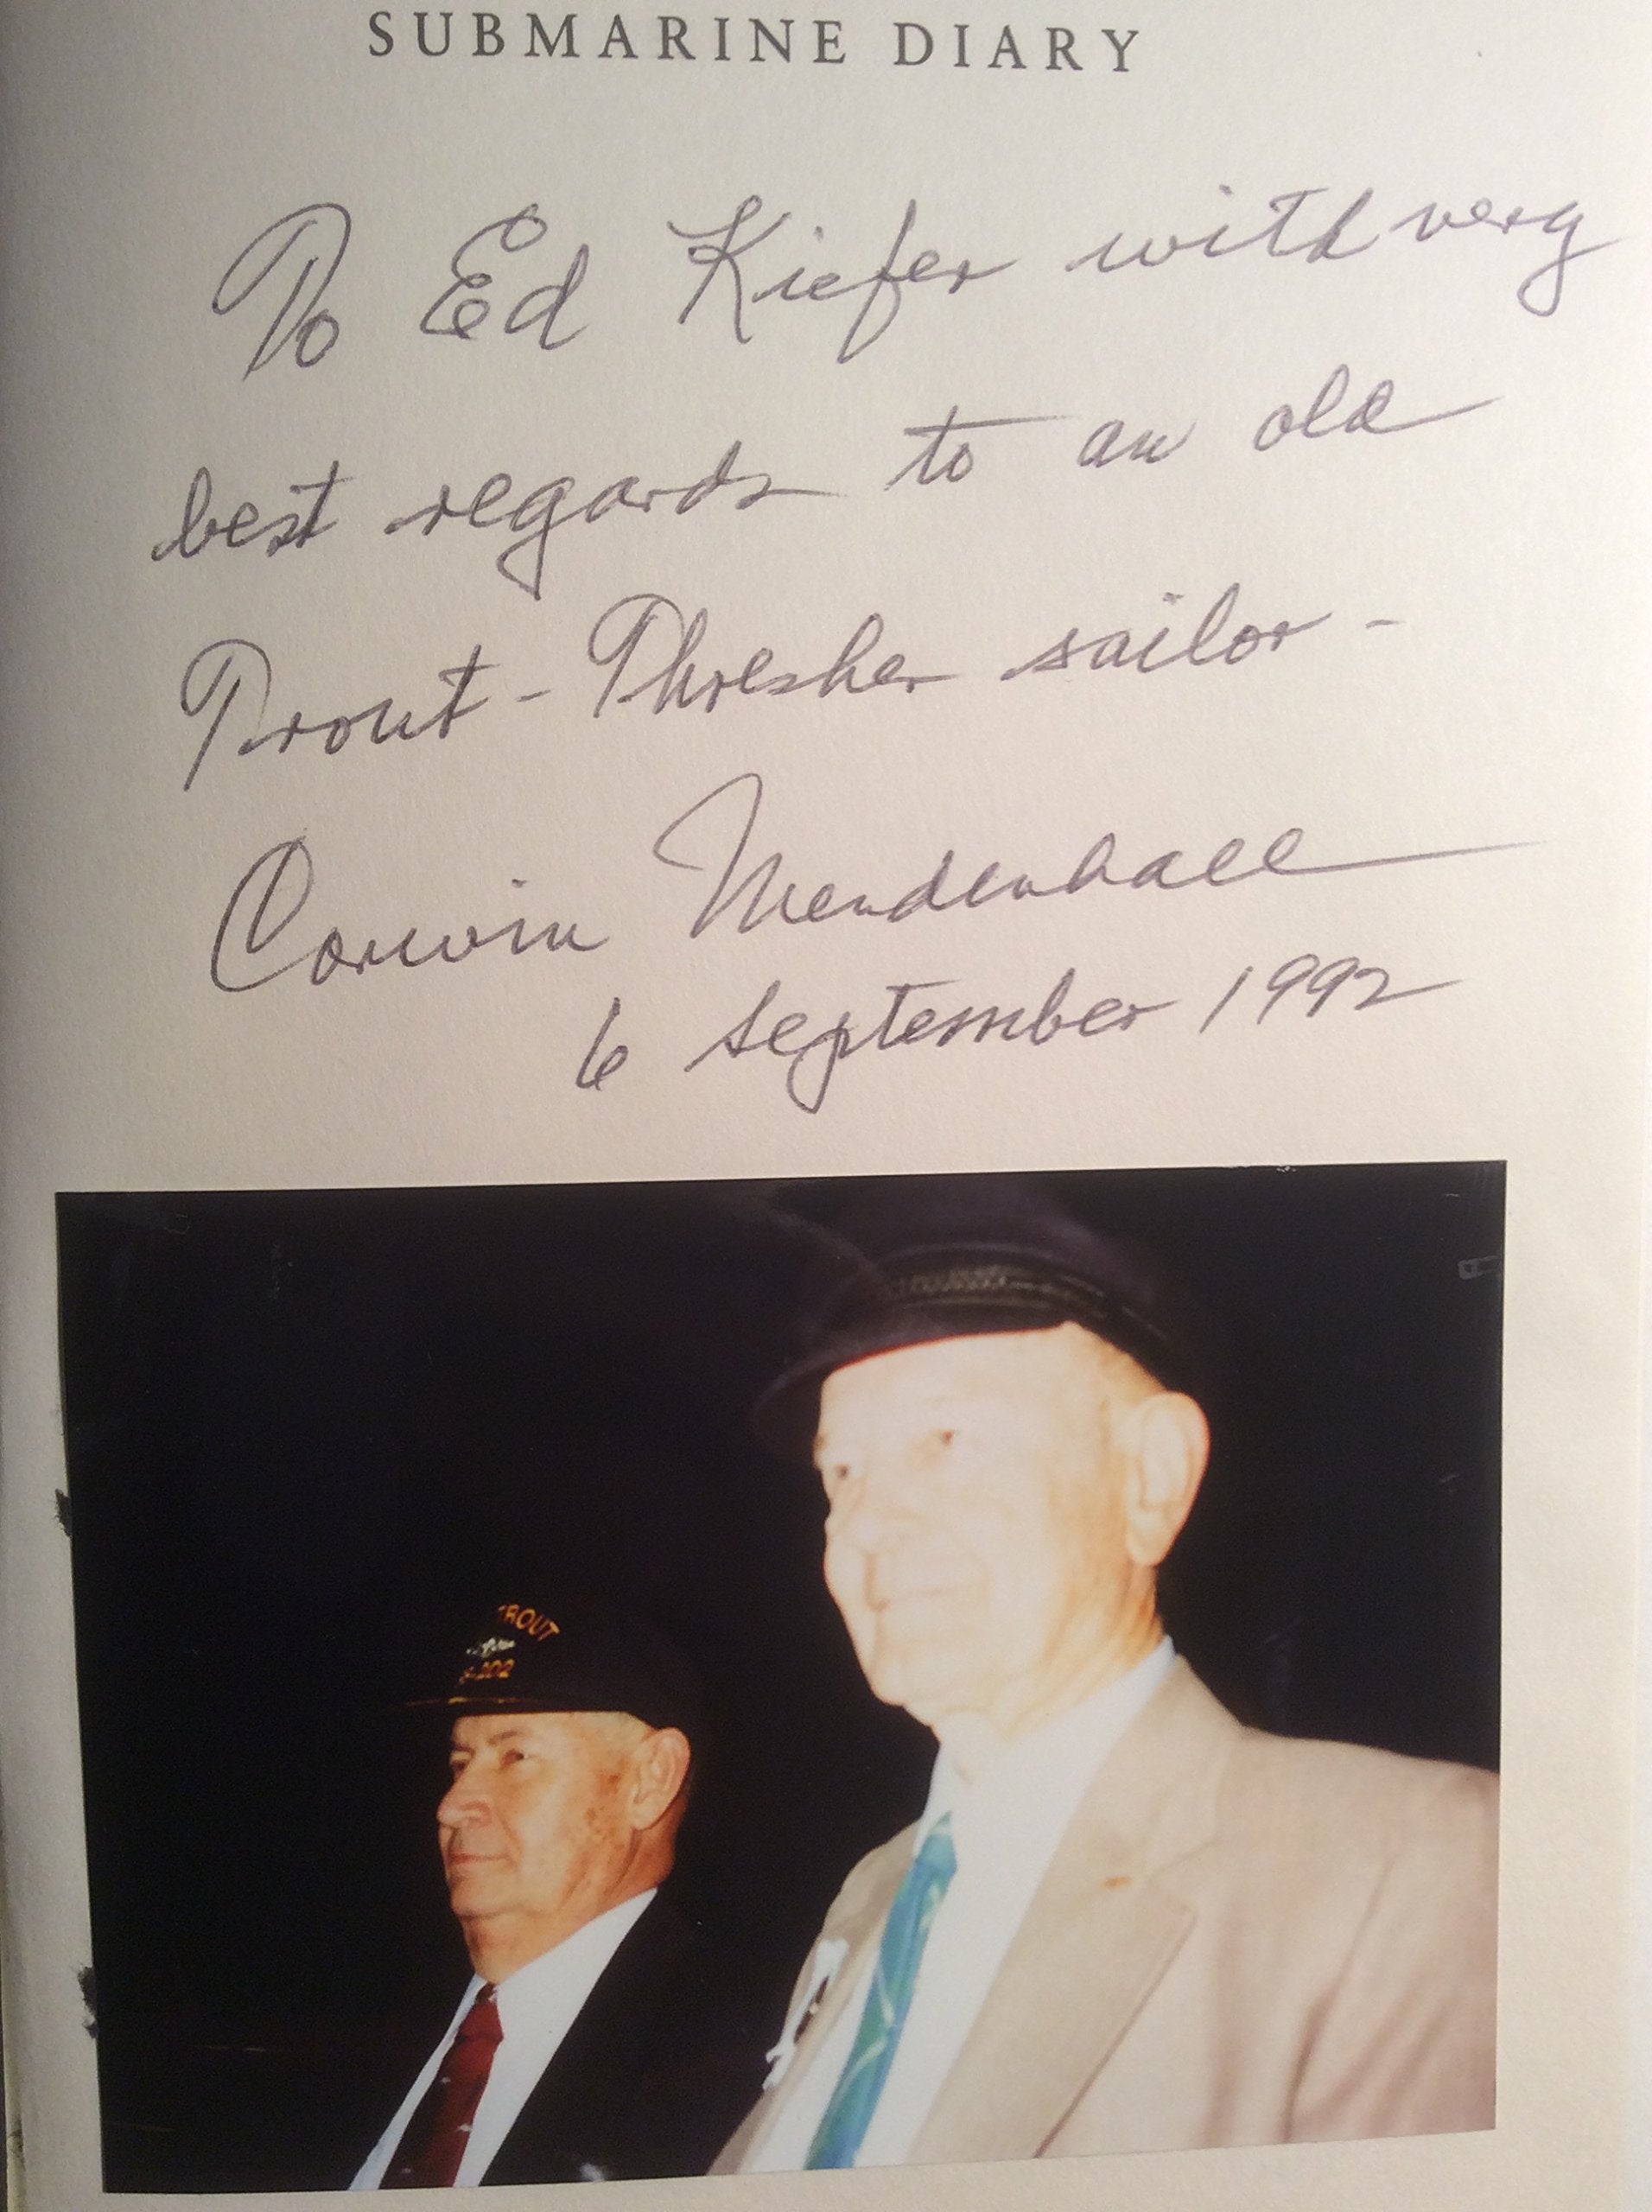 SUBMARINE DIARY
To Ed Kiefer with very
best regards to an old
Trout-Thresher sailor-
Corwin Mendenhall
6 September 1992
TROUT
-202